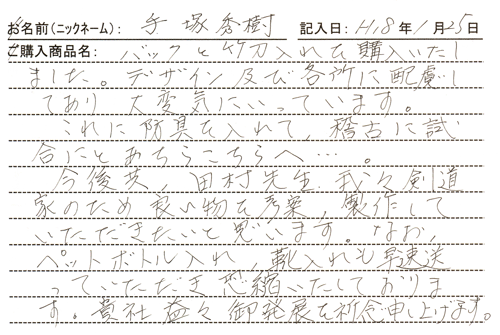 お名前(ニックネーム): 手塚秀樹 記入日:H18年1月25日
ご購入商品名: バックと竹刀入れを購入いたし
ました。デザイン及び各所に配慮し
てあり大変気にいっています。
これに防具を入れて、稽古に試
合にとあちらこちらへ…。
今後共、田村先生、我々剣道
家のため良い物を考案、製作して
いただきたいと思います。なお、
ペットボトル入れ、靴入れも早速送
っていただき恐縮いたしておりま
す。貴社益々御発展を祈念申し上げます。